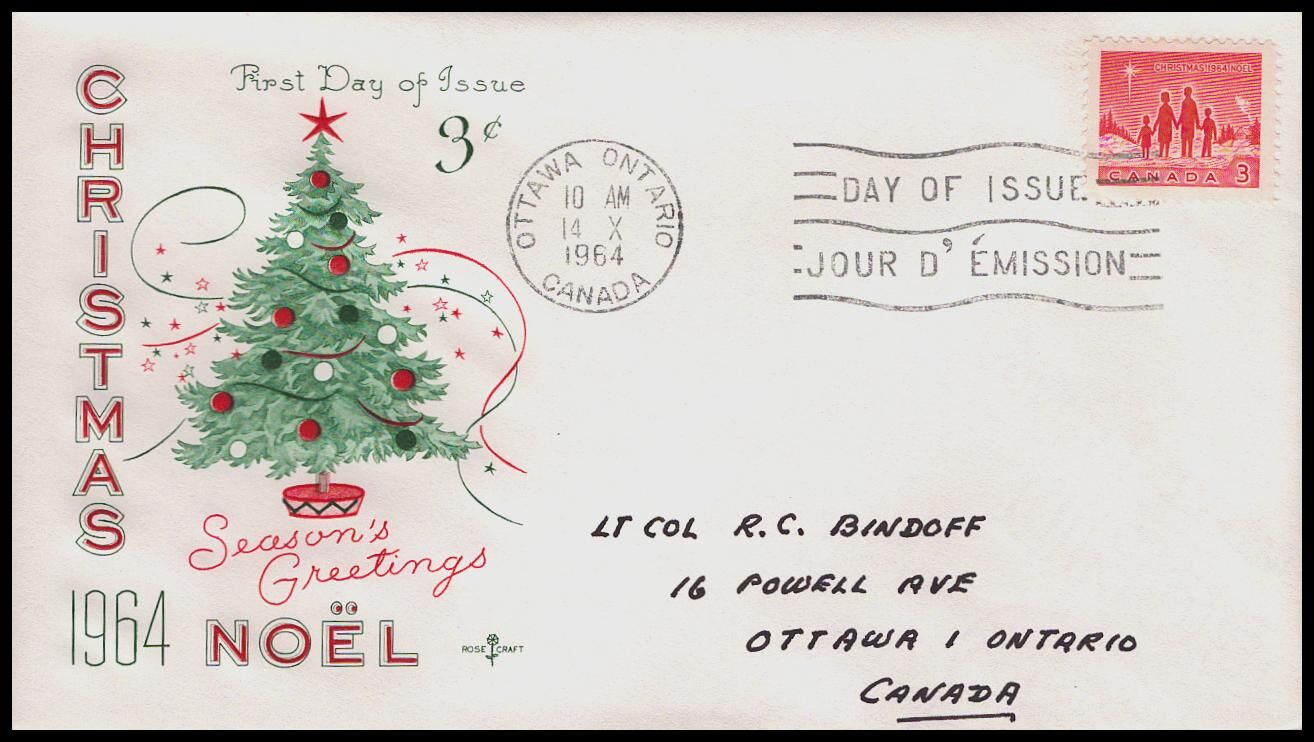 CHRISTMAS
First Day of Issue
3¢
Season's
Greetings
1964
NOËL
ROSE CRAFT
OTTAWA ONTARIO
10 AM
14 X
1964
CANADA
DAY OF ISSUE
JOUR D'ÉMISSION
CHRISTMAS 1964 NOËL
CANADA 3
LT COL R.C. BINDOFF
16 POWELL AVE
OTTAWA 1 ONTARIO
CANADA